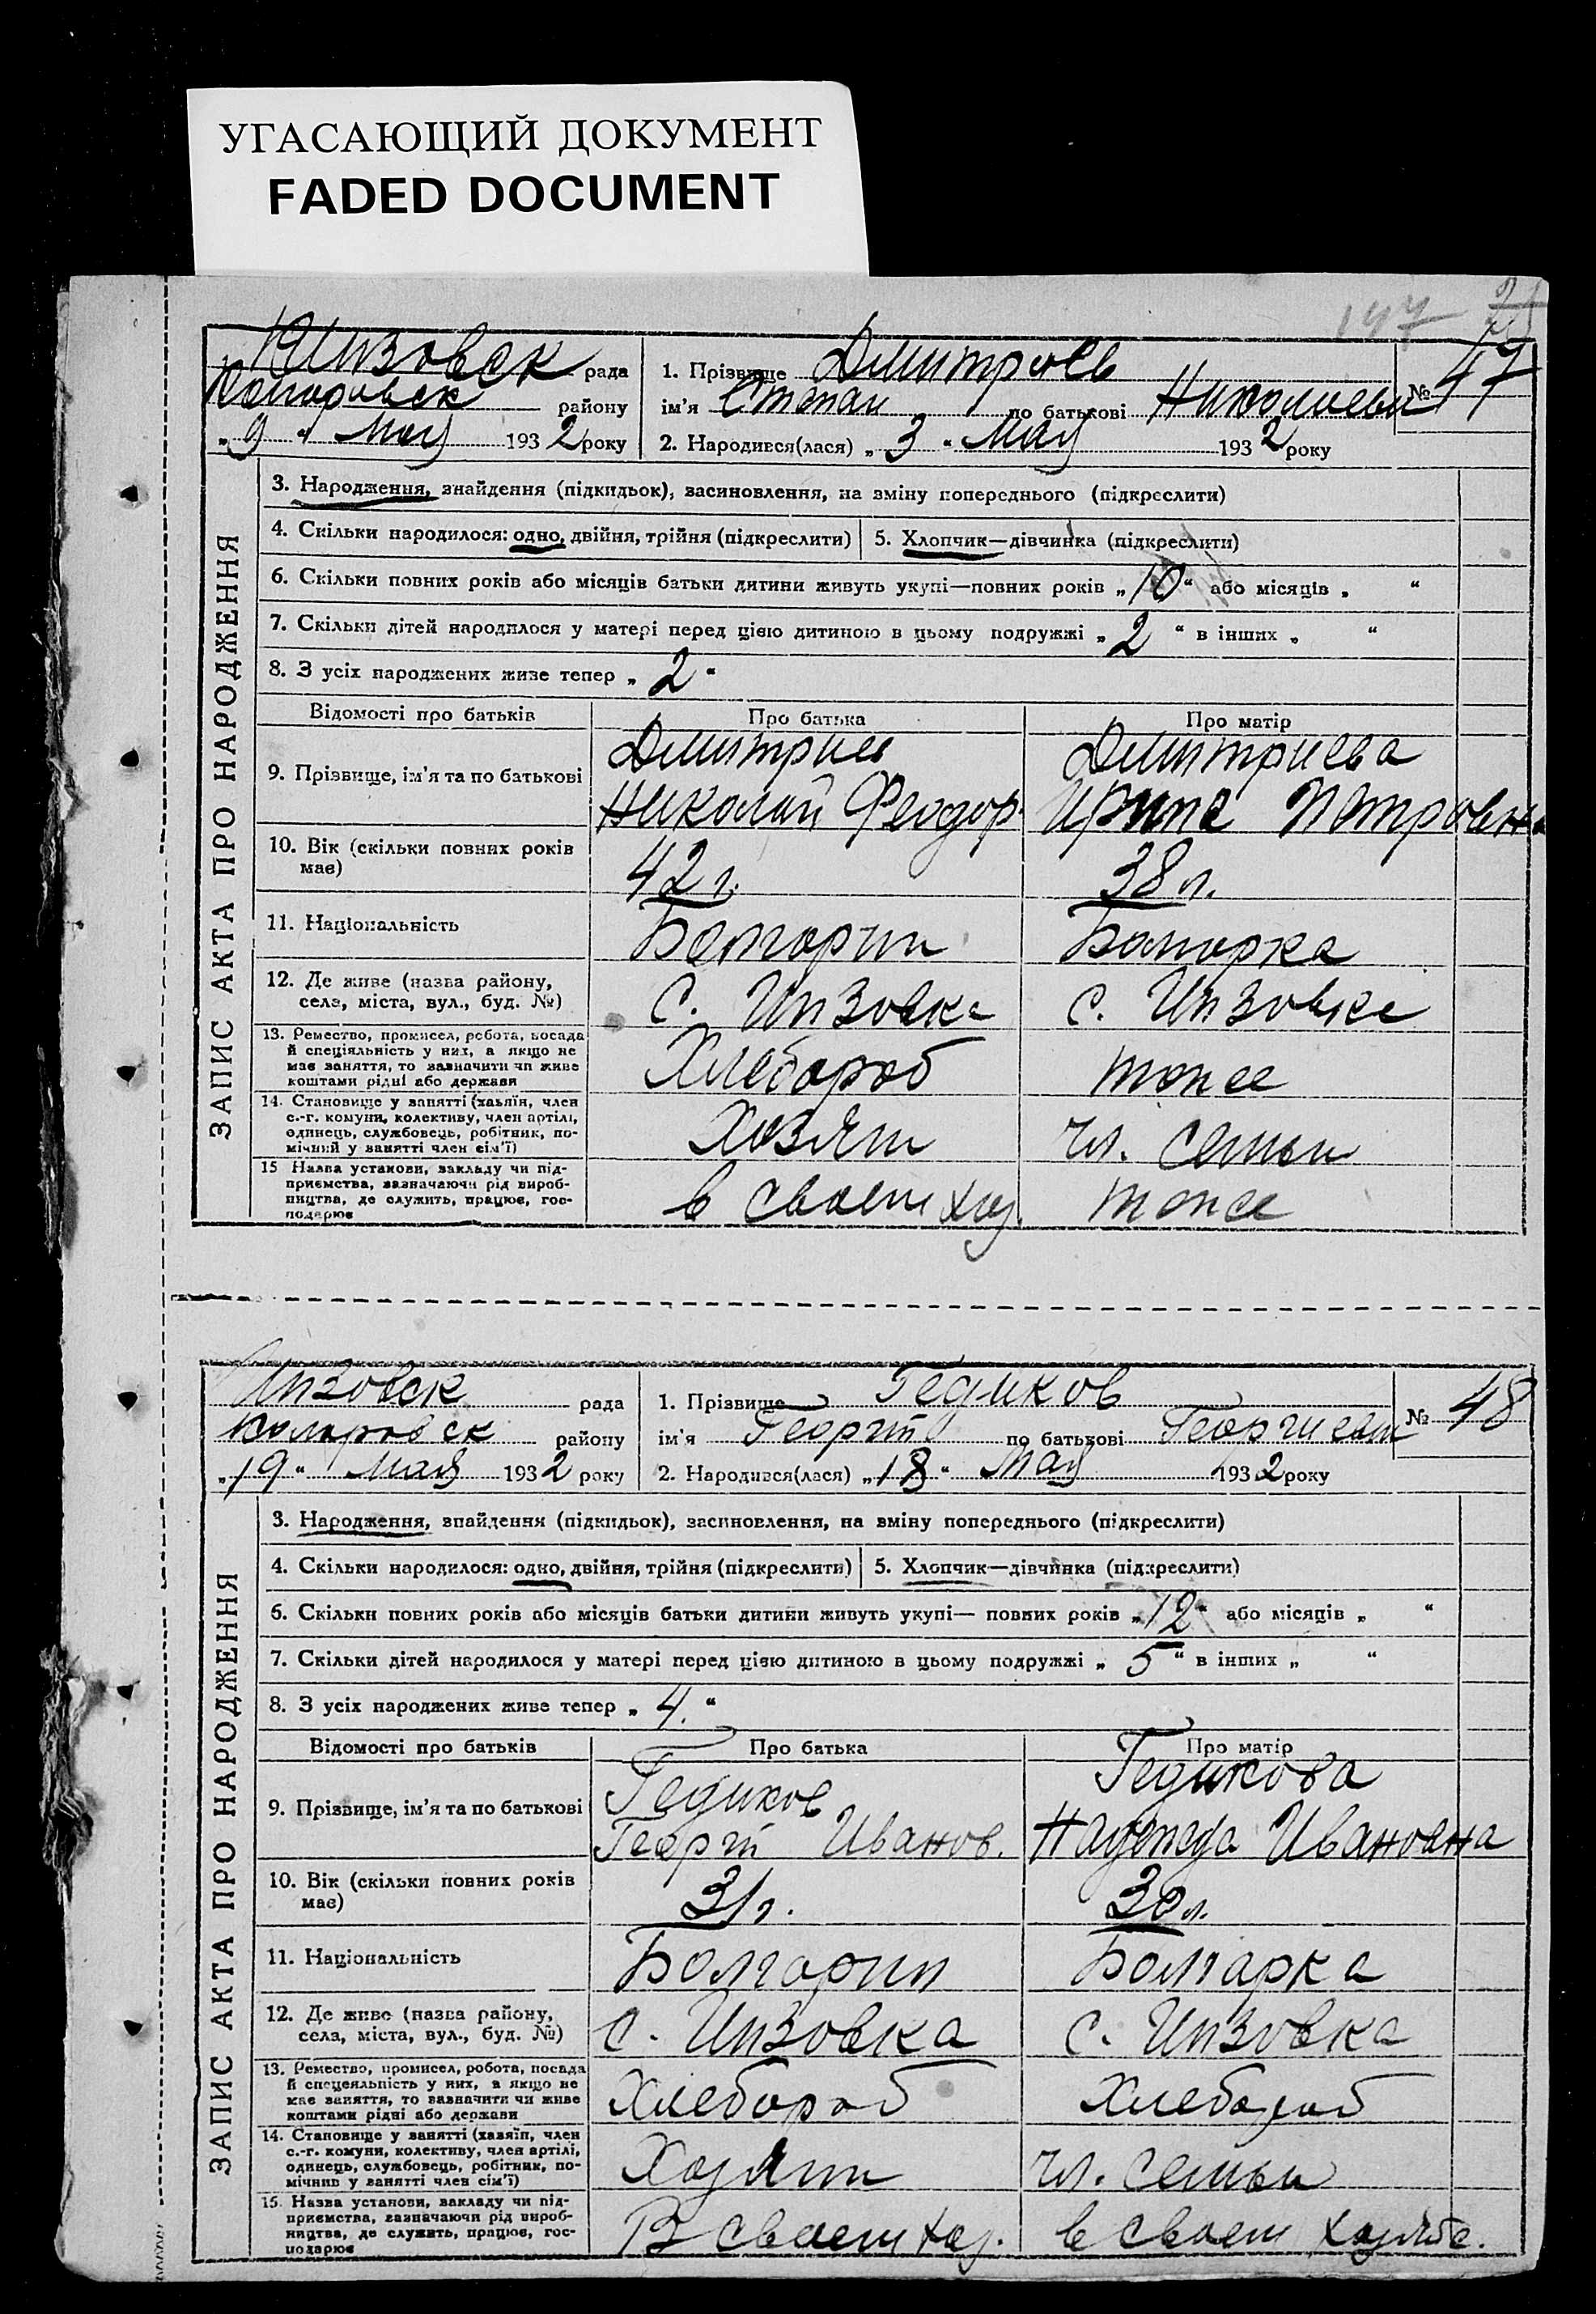 УГАСАЮЩИЙ ДОКУМЕНТ
FADED DOCUMENT
147
47
Инзовск рада
Коларовск району
„9“ Мая 1932 року
1. Прізвище Дмитриев
ім'я Степан по батькові Николаевич №
2. Народився(лася) „3“ Мая 1932 року
ЗАПИС АКТА ПРО НАРОДЖЕННЯ
3. Народження, знайдення (підкидьок), засиновлення, на зміну попереднього (підкреслити)
4. Скільки народилося: одно, двійня, трійня (підкреслити) 5. Хлопчик—дівчинка (підкреслити)
6. Скільки повних років або місяців батьки дитини живуть укупі—повних років „10“ або місяців „ “
7. Скільки дітей народилося у матері перед цією дитиною в цьому подружжі „2“ в інших „ “
8. З усіх народжених живе тепер „2“
Відомості про батьків Про батька Про матір
9. Прізвище, ім'я та по батькові
Дмитриев Дмитриева
Николай Феодор. Ирина Петровна
10. Вік (скільки повних років має) 42 г. 38 л.
11. Національність Болгарин Болгарка
12. Де живе (назва району, села, міста, вул., буд. №) с. Инзовка с. Инзовка
13. Ремество, промисел, робота, посада й спеціяльність у них, а якщо не має заняття, то зазначити чи живе коштами рідні або держави Хлебороб тоже
14. Становище у занятті (хазяїн, член с.-г. комуни, колективу, член артілі, одинець, службовець, робітник, помічний у занятті член сім'ї) Хозяин чл. семьи
15 Назва установи, закладу чи підприємства, зазначаючи рід виробництва, де служить, працює, господарює в своем хоз. тоже
Инзовск рада
Коларовск району
„19“ Мая 1932 року
1. Прізвище Гедиков
ім'я Георгий по батькові Георгиевич № 48
2. Народився(лася) „18“ Мая 1932 року
ЗАПИС АКТА ПРО НАРОДЖЕННЯ
3. Народження, знайдення (підкидьок), засиновлення, на зміну попереднього (підкреслити)
4. Скільки народилося: одно, двійня, трійня (підкреслити) 5. Хлопчик—дівчинка (підкреслити)
6. Скільки повних років або місяців батьки дитини живуть укупі— повних років „12“ або місяців „ “
7. Скільки дітей народилося у матері перед цією дитиною в цьому подружжі „5“ в інших „ “
8. З усіх народжених живе тепер „4.“
Відомості про батьків Про батька Про матір
9. Прізвище, ім'я та по батькові
Гедиков Гедикова
Георгий Иванов. Надежда Ивановна
10. Вік (скільки повних років має) 31 г. 30 л.
11. Національність Болгарин Болгарка
12. Де живе (назва району, села, міста, вул., буд. №) с. Инзовка с. Инзовка
13. Ремество, промисел, робота, посада й спецеяльність у них, а якщо не має заняття, то зазначити чи живе коштами рідні або держави Хлебороб Хлебороб
14. Становище у занятті (хазяїн, член с.-г. комуни, колективу, член артілі, одинець, службовець, робітник, помічний у занятті член сім'ї) Хозяин чл. семьи
15. Назва установи, закладу чи підприємства, зазначаючи рід виробництва, де служить, працює, господарює В своем хоз. в своем хозяйстве.